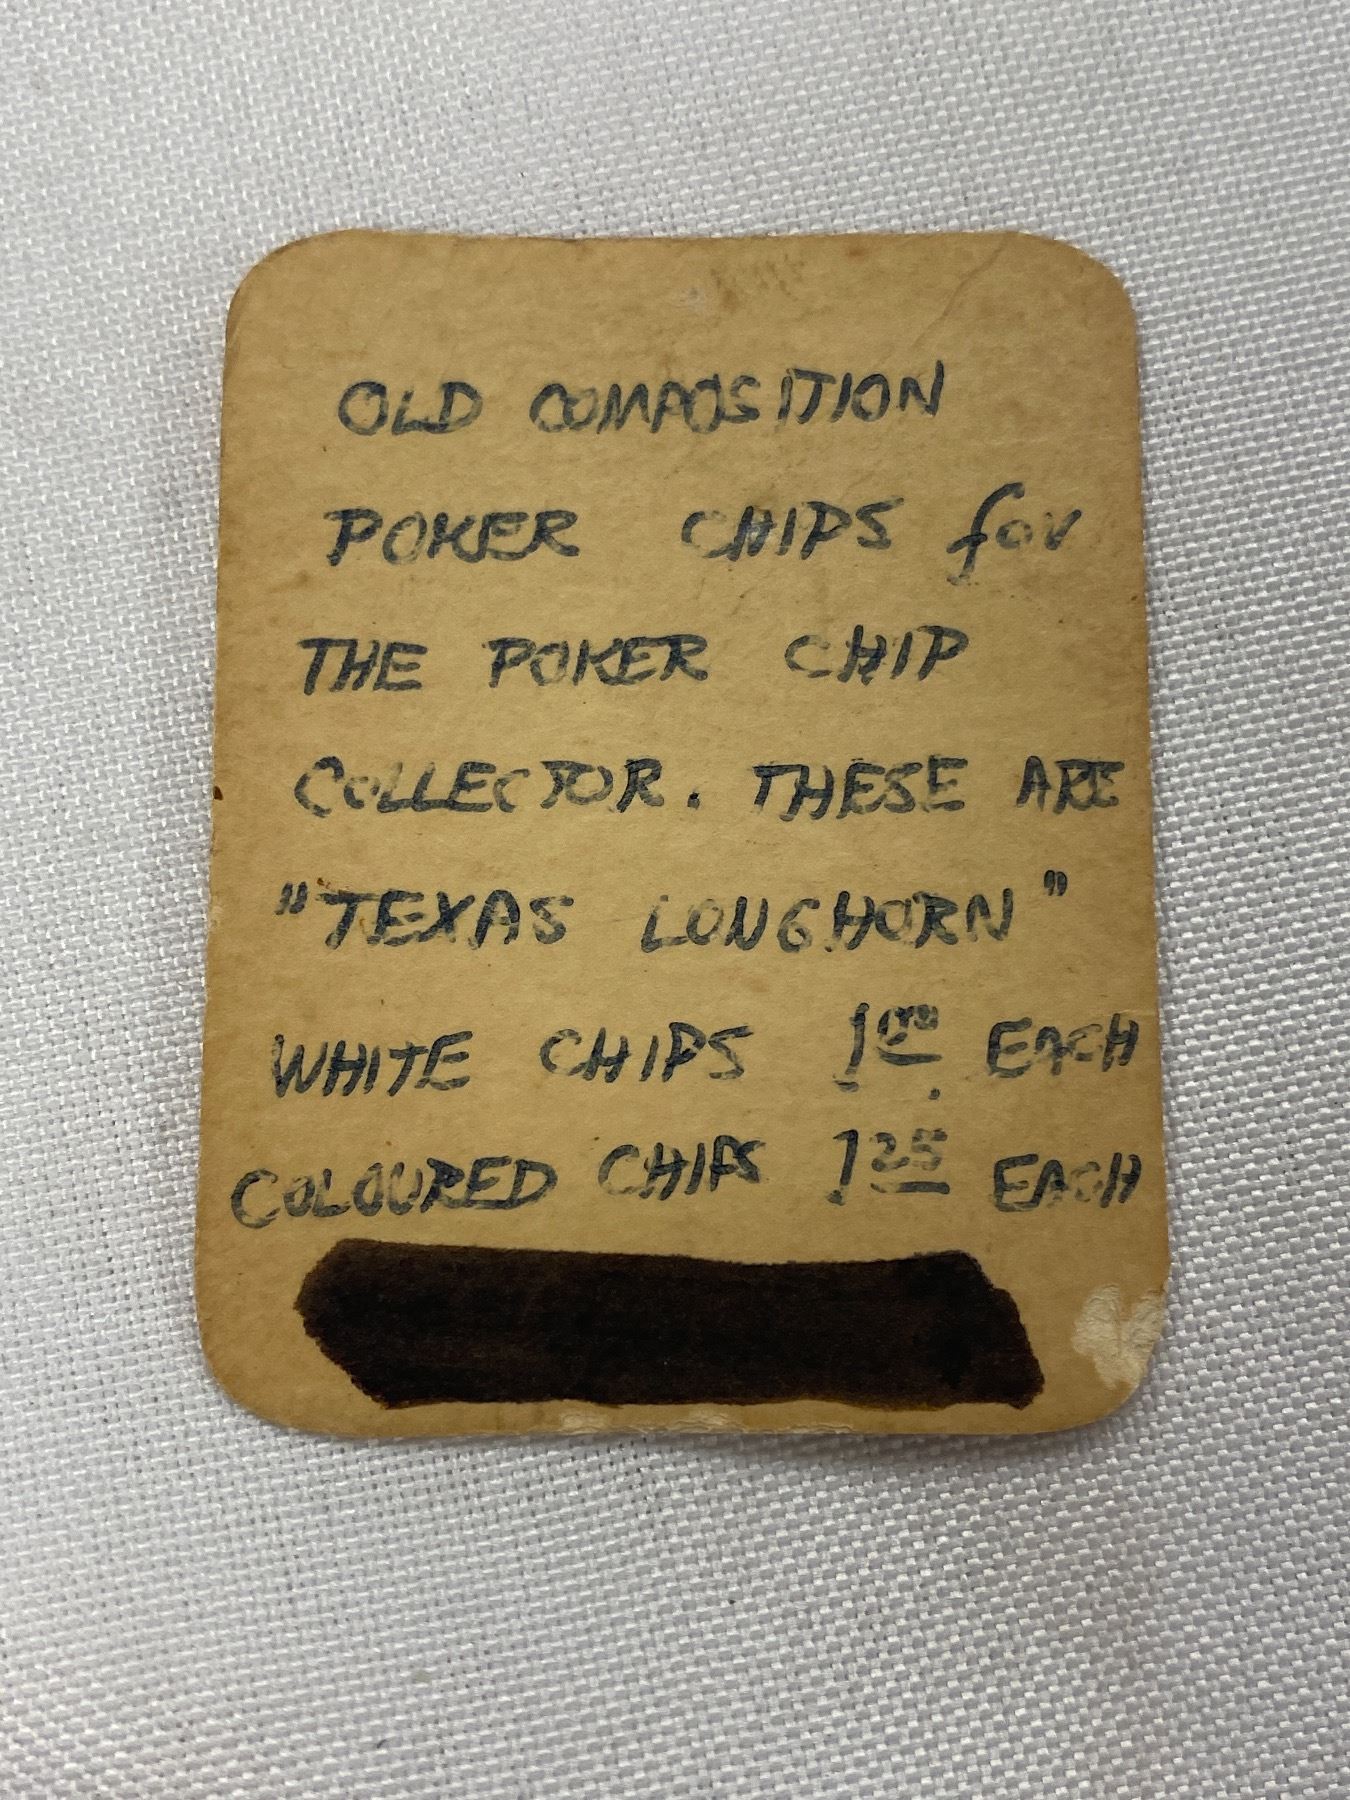 OLD COMPOSITION
POKER CHIPS for
THE POKER CHIP
COLLECTOR. THESE ARE
"TEXAS LONGHORN"
WHITE CHIPS 1.00 EACH
COLOURED CHIPS 1.25 EACH